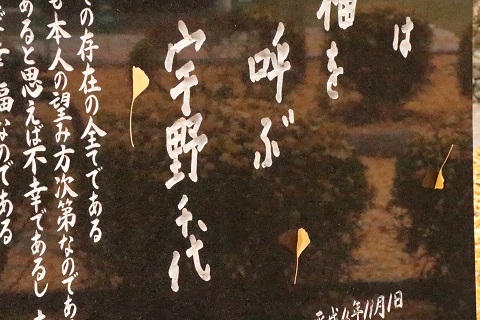 は
福を
呼ぶ
宇野千代
平成11年11月1日
の存在の全てである
も本人の望み方次第なのであ
あると思えば不幸であるし
幸福なのである